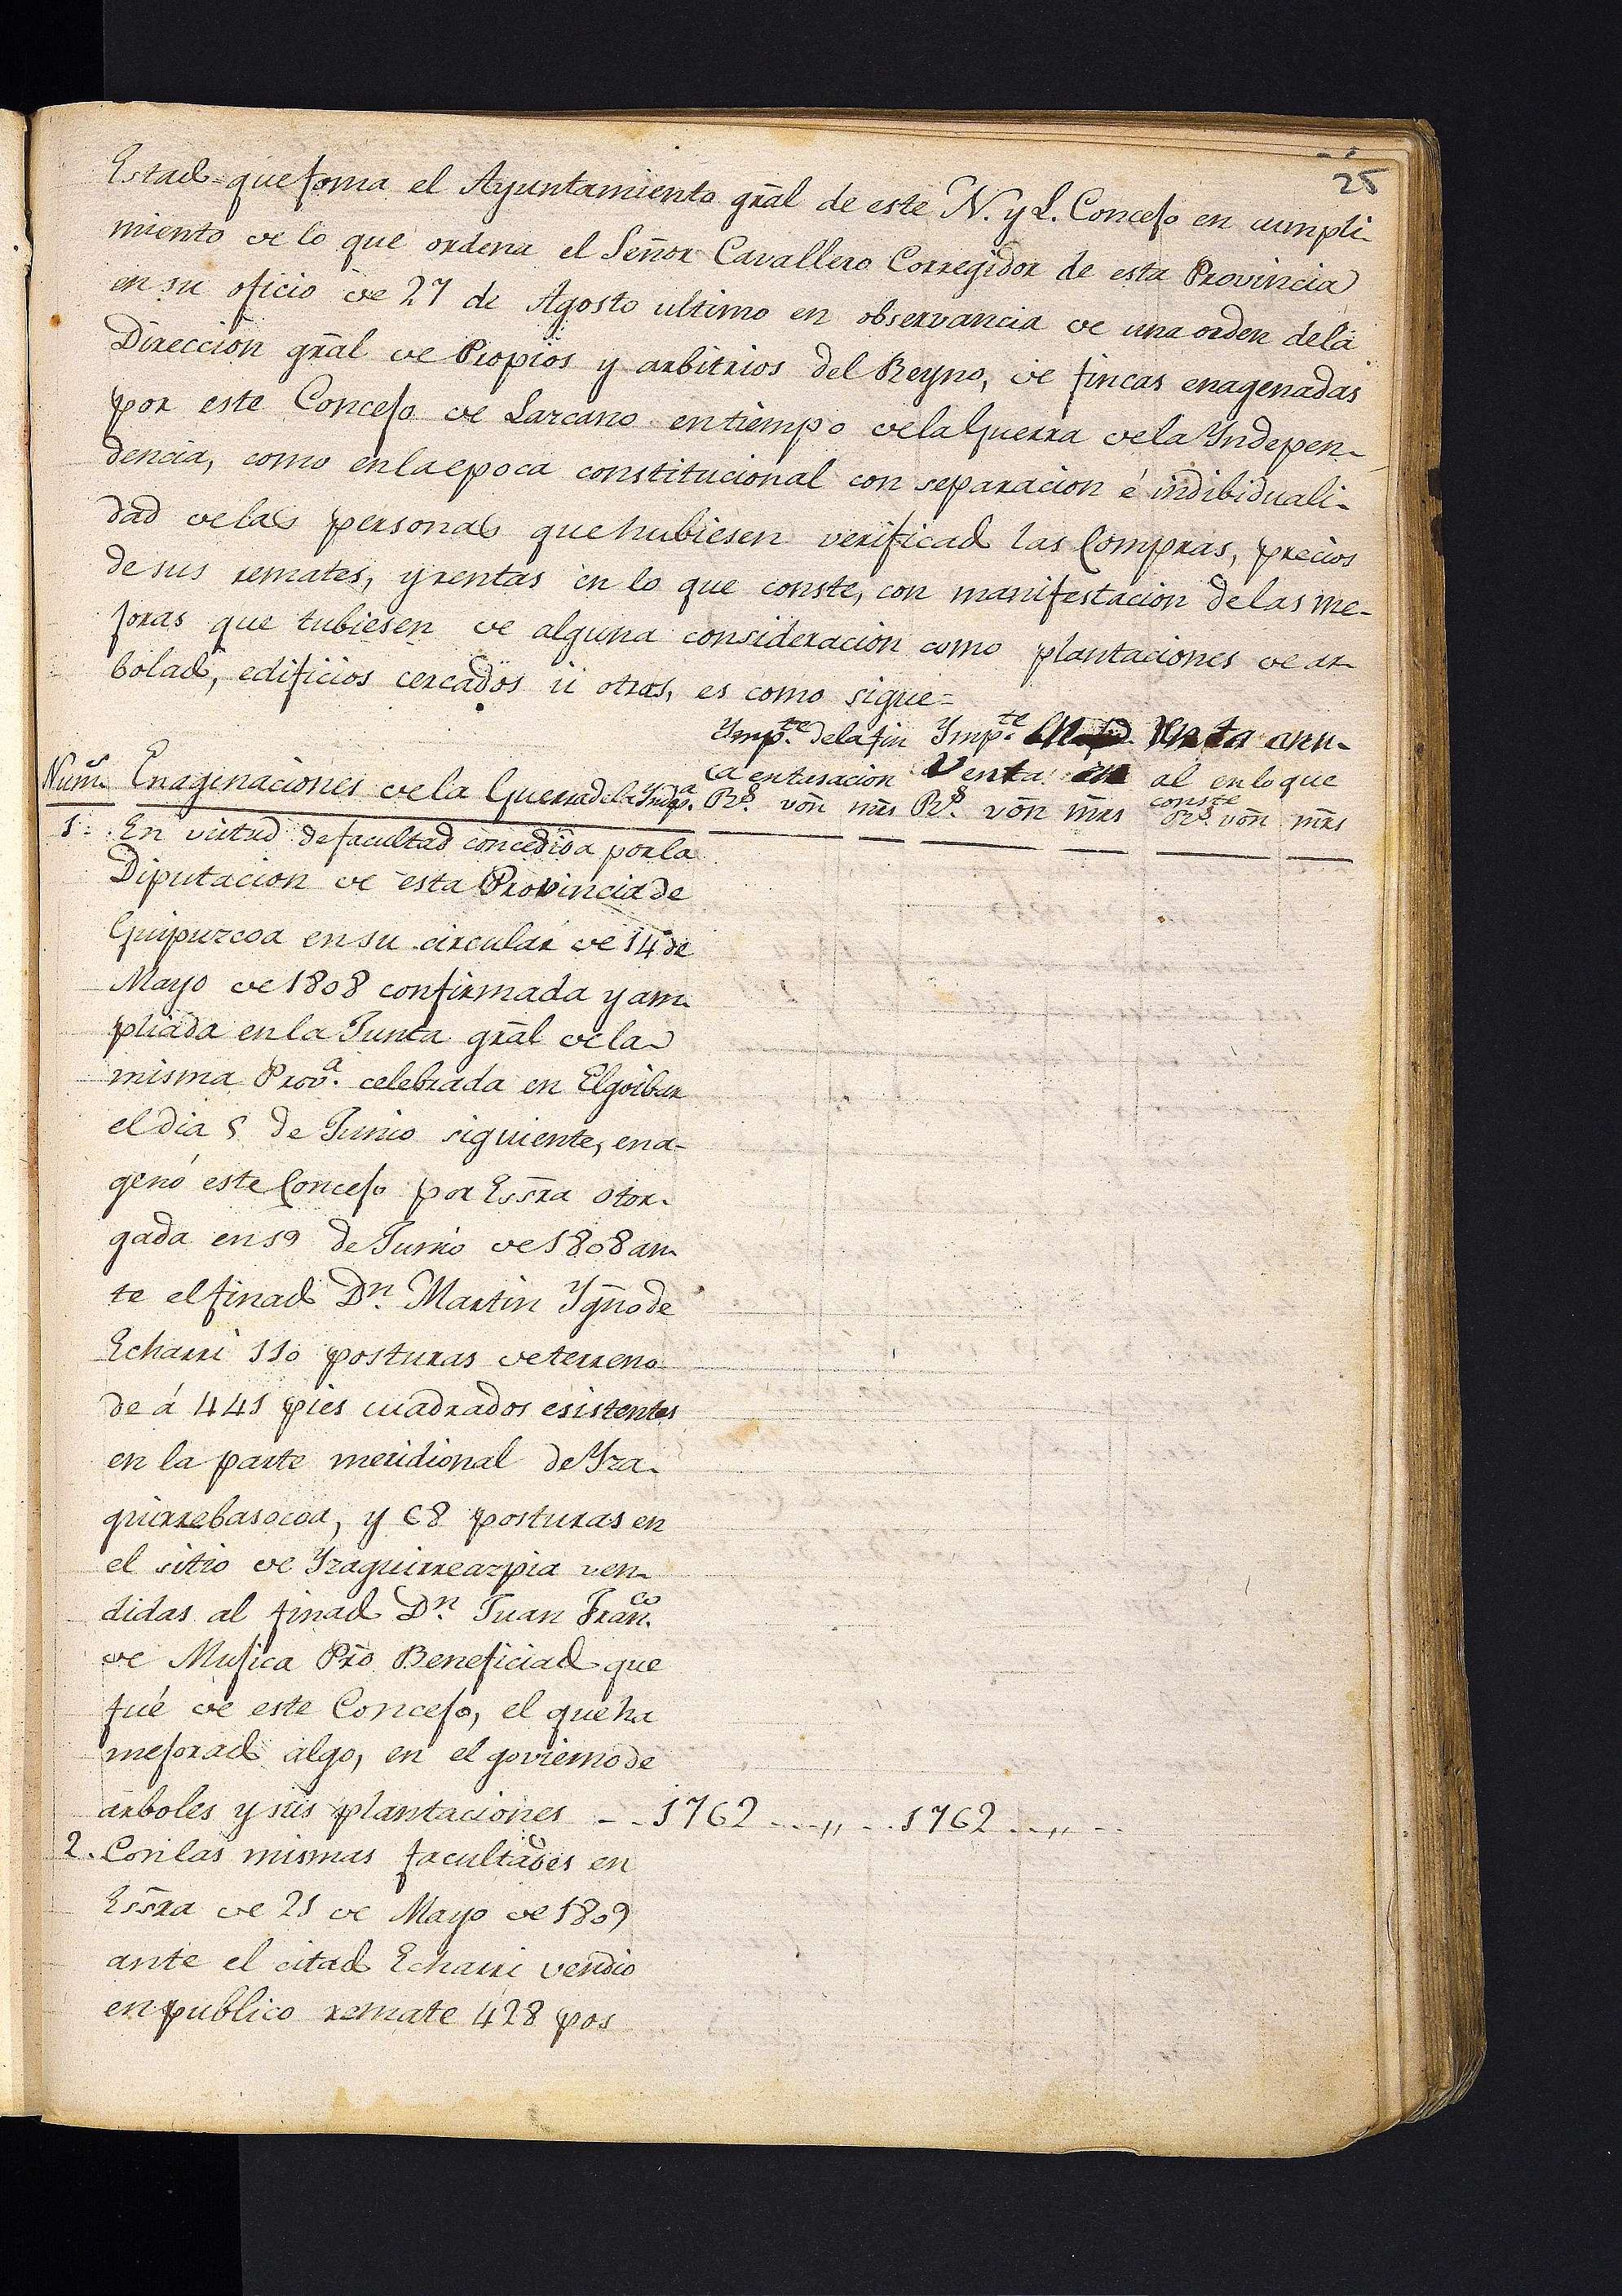 25
Estado que forma el Ayuntamiento gral de este N. y L. Concejo en cumpli-
miento de lo que ordena el Señor Cavallero Corregidor de esta Provincia
en su oficio de 27 de Agosto ultimo en observancia de una orden de la
Direccion gral de Propios y arbitrios del Reyno, de fincas enagenadas
por este Concejo de Lazcano en tiempo de la Guerra de la Yndepen-
dencia, como en la epoca constitucional con separacion é indibiduali-
dad de las personas que hubiesen verificado las Compras, precios
de sus remates, y rentas en lo que conste, con manifestacion de las me-
joras que tubiesen de alguna consideracion como plantaciones de ar-
bolado, edificios cercados ú otras, es como sigue=
Ymp.te de la fin Ymp.te Renta anu-
ca en tasacion Venta al en lo que
Num.s Enagenaciones de la Guerra de la Yndep.a R.s von mrs R.s von mrs conste R.s von mrs
1. En virtud de facultad concedida por la
Diputacion de esta Provincia de
Guipuzcoa en su circular de 14 de
Mayo de 1808 confirmada y am-
pliada en la Junta gral de la
misma Prov.a celebrada en Elgoibar
el dia 5 de Junio siguiente, ena-
genó este Concejo por Essra otor-
gada en 19 de Junio de 1808 an-
te el finado Dn. Martin Ygno de
Echarri 110 posturas de terreno
de á 441 pies cuadrados esistentes
en la parte meridional de Yra-
guirrebasocoa, y 68 posturas en
el sitio de Yraguirreazpia ven-
didas al finado Dn. Juan Fran.co
de Mujica Pro Beneficiado que
fué de este Concejo, el que ha
mejorado algo, en el govierno de
arboles y sus plantaciones - - 1762 ---,,- -- 1762 --,,- --
2. Con las mismas facultades en
Essra de 21 de Mayo de 1809
ante el citado Echarri vendio
en publico remate 428 pos